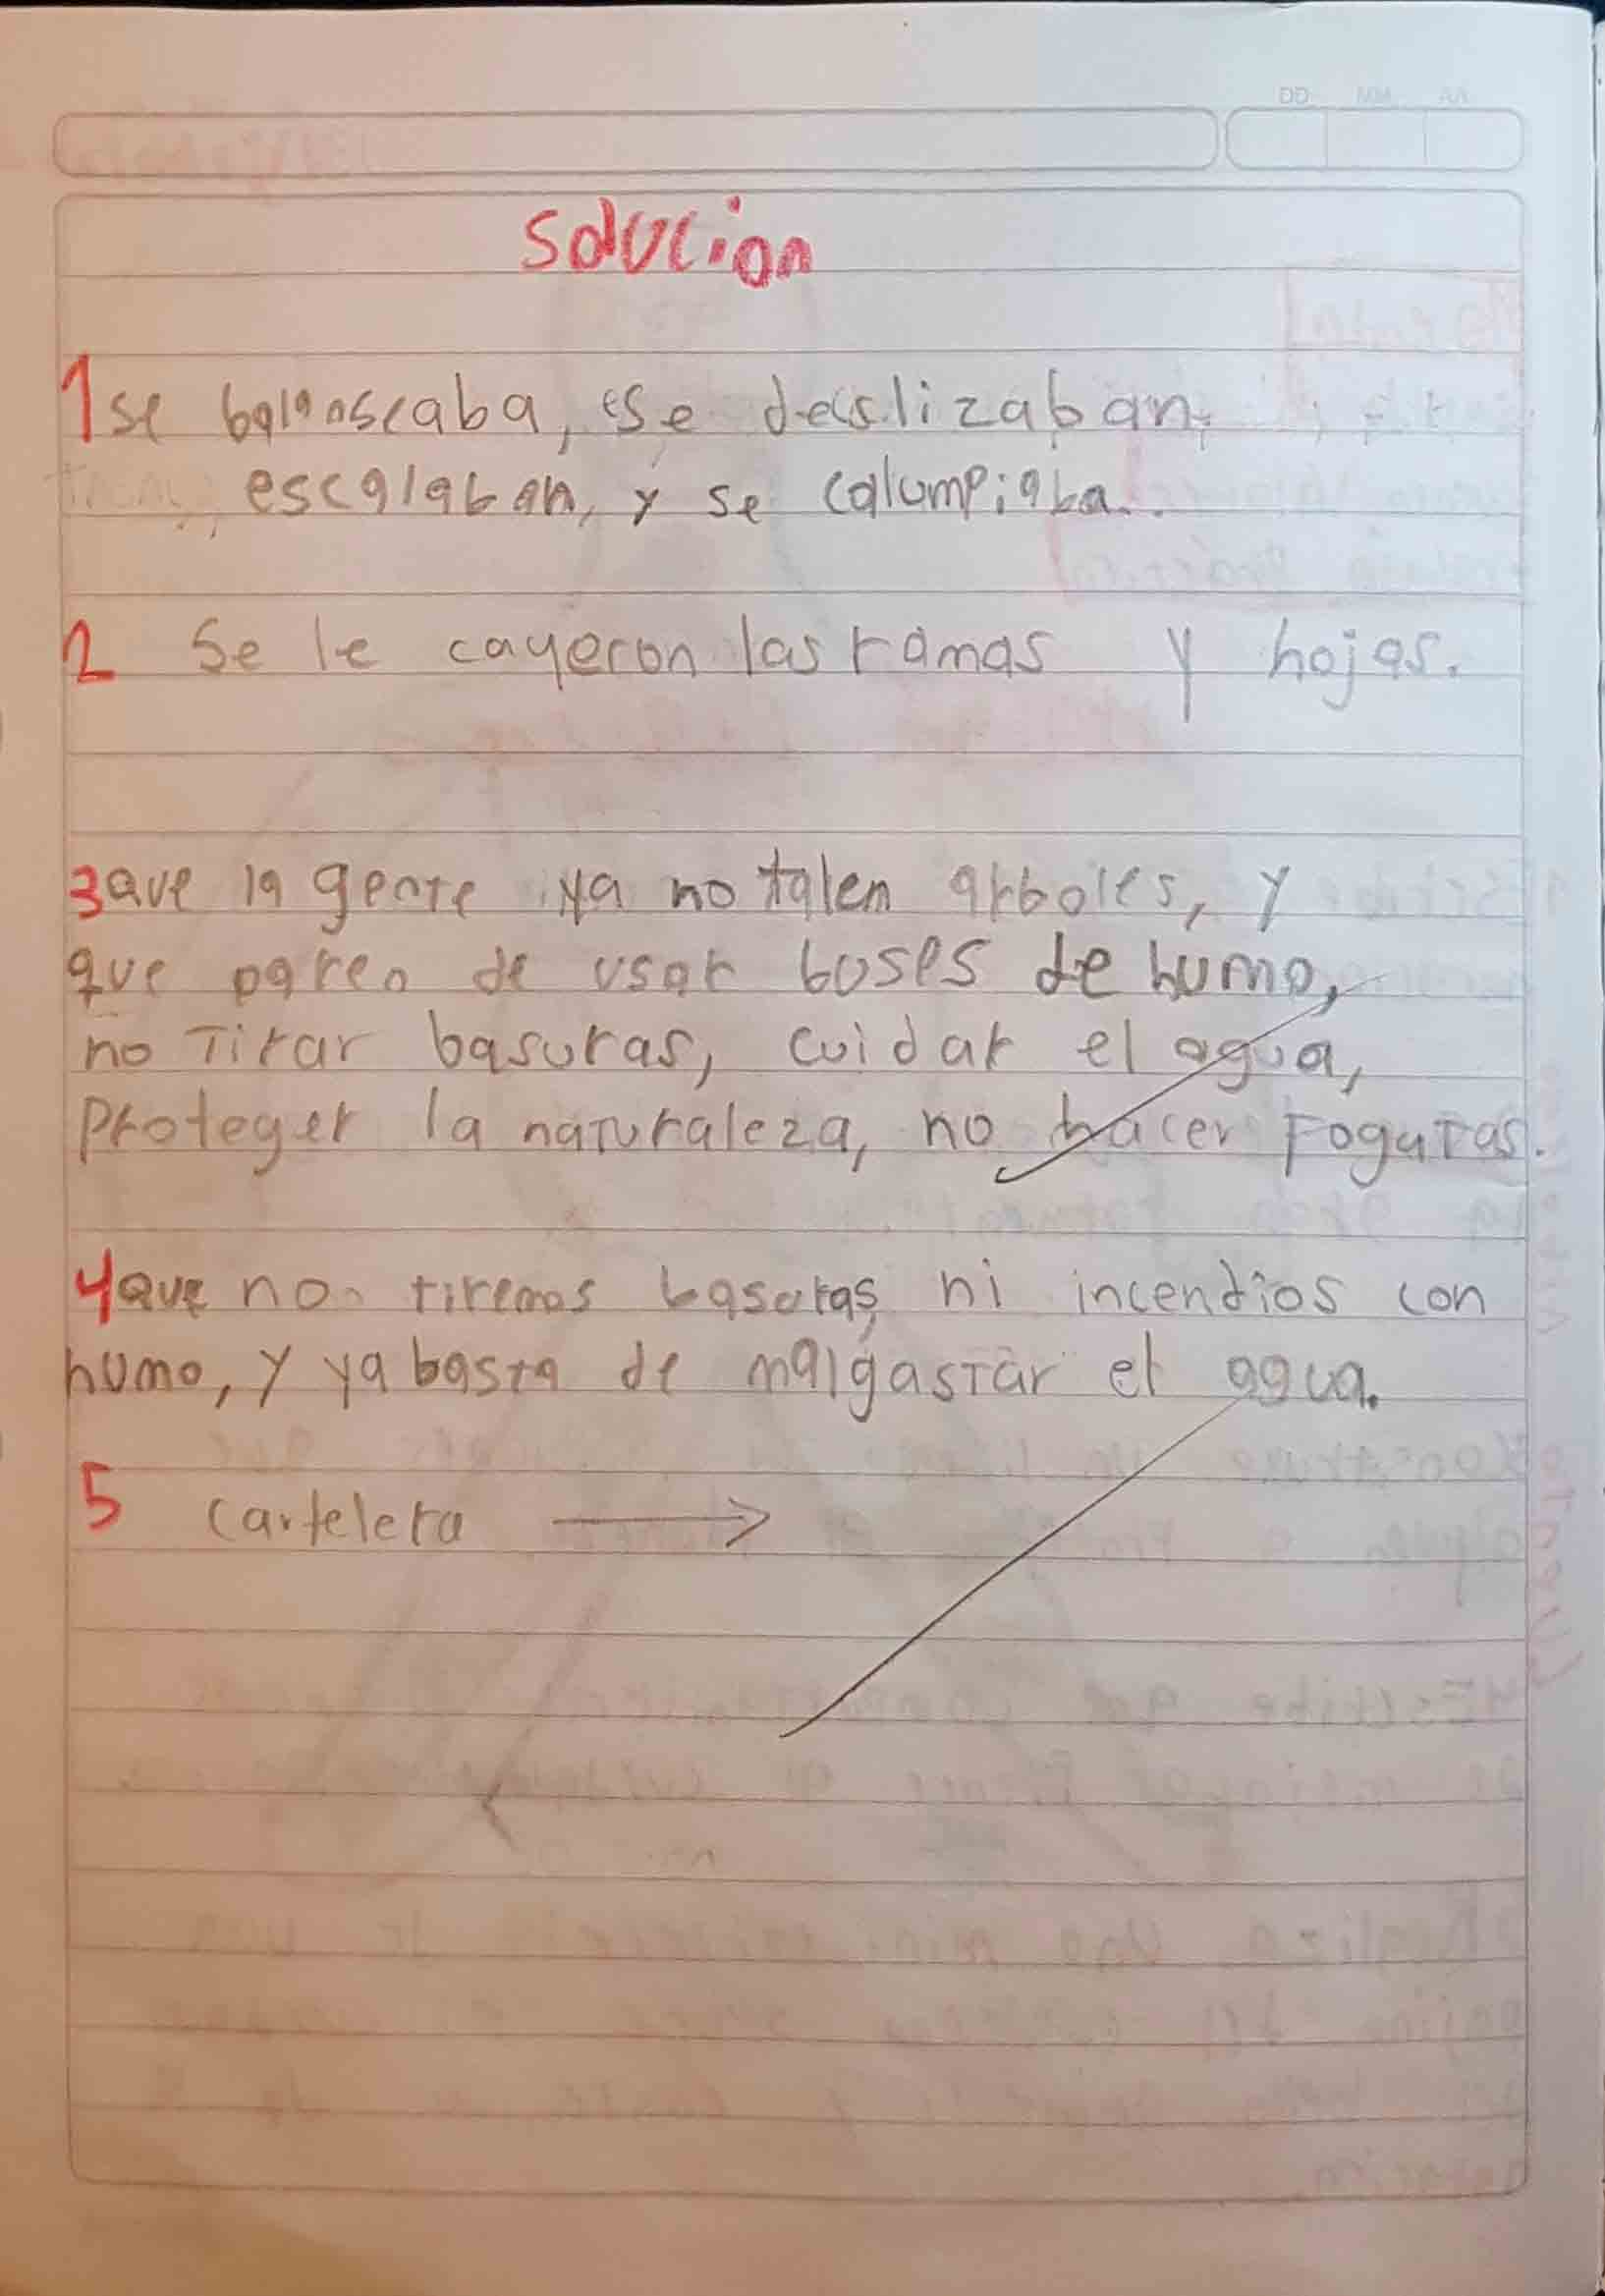 DD MM AA
Solucion
1 se balanscaba, se deslizaban,
escalaban, y se columpiaba.
2 Se le cayeron las ramas y hojas.
3 que la gente ya no talen arboles, y
que paren de usar buses de humo,
no Tirar basuras, cuidar el agua,
Proteger la naturaleza, no hacer Fogatas.
4 que no tiremos basuras, ni incendios con
humo, y ya basta de malgastar el agua.
5 cartelera →